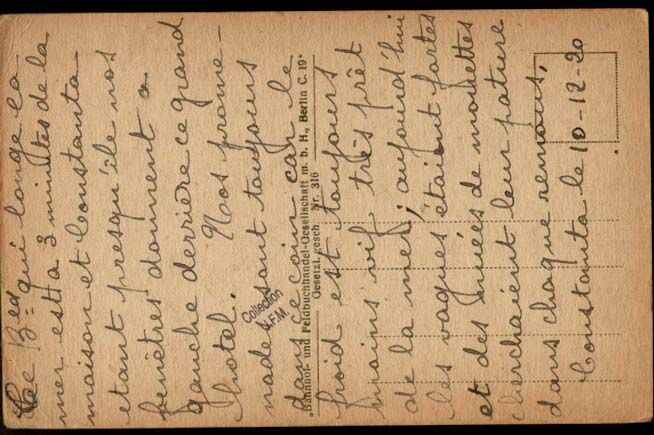 Ce Bd qui longe la
mer est a 3 minutes de la
maison et Constanta
etant presqu'île nos
fenêtres donnent a
gauche derrière ce grand
hotel. Nos prome-
nades sont toujours
dans ce coin car le
froid est toujours
moins vif très prêt
de la mer; aujourd'hui
les vagues étaient fortes
et des nuées de mouettes
cherchaient leur pature
dans chaque remous.
Constanta le 10-12-20
Collection
A.F.M.
Bahnhof- und Feldbuchhandel-Gesellschaft m. b. H., Berlin C. 19
Gesetzl. gesch. Nr. 316